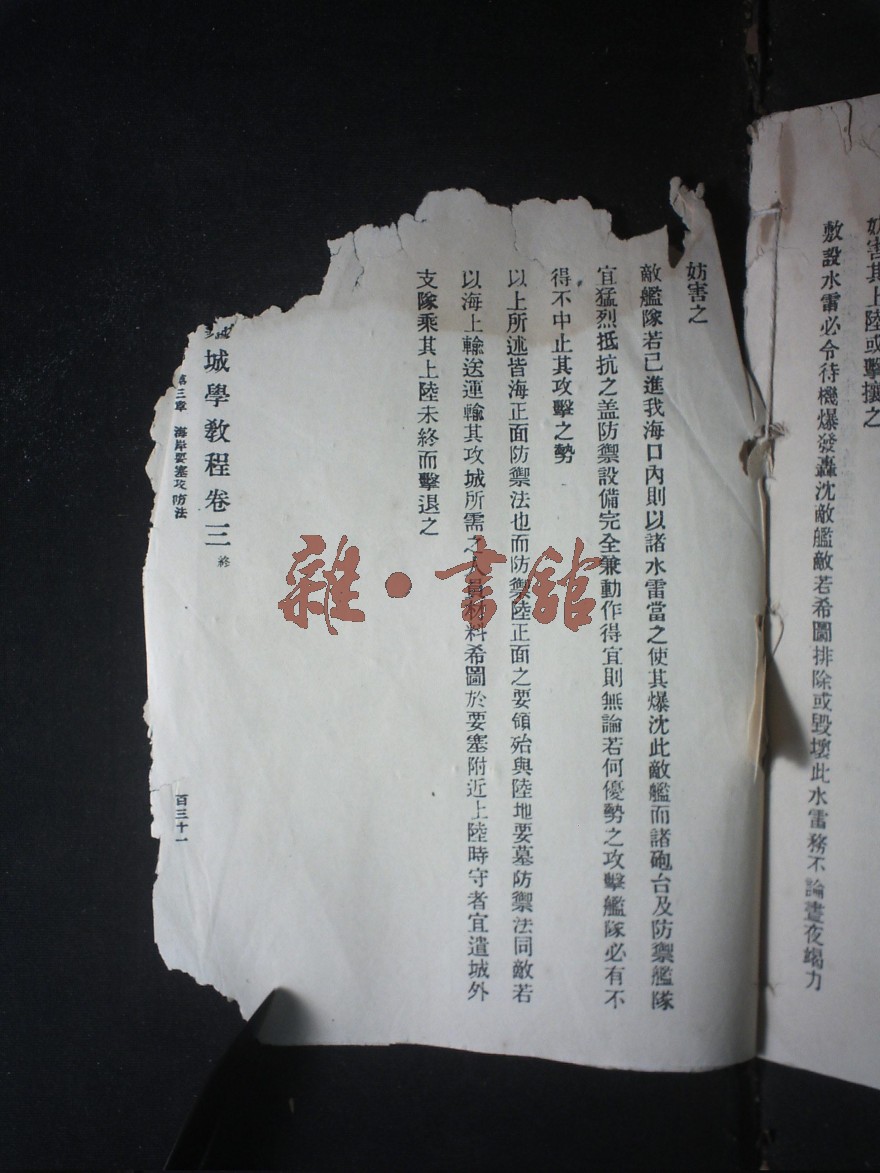 妨害其上陸或擊攘之
敷設水雷必令待機爆發轟沈敵艦敵若希圖排除或毀壞此水雷務不論晝夜竭力
妨害之
敵艦隊若已進我海口內則以諸水雷當之使其爆沈此敵艦而諸砲台及防禦艦隊
宜猛烈抵抗之盖防禦設備完全兼動作得宜則無論若何優勢之攻擊艦隊必有不
得不中止其攻擊之勢
以上所述皆海正面防禦法也而防禦陸正面之要領殆與陸地要墓防禦法同敵若
以海上輸送運輸其攻城所需之人員材料希圖於要塞附近上陸時守者宜遣城外
支隊乘其上陸未終而擊退之
城學教程卷三 終
第三章 海岸要塞攻防法
百三十一
雜·書館